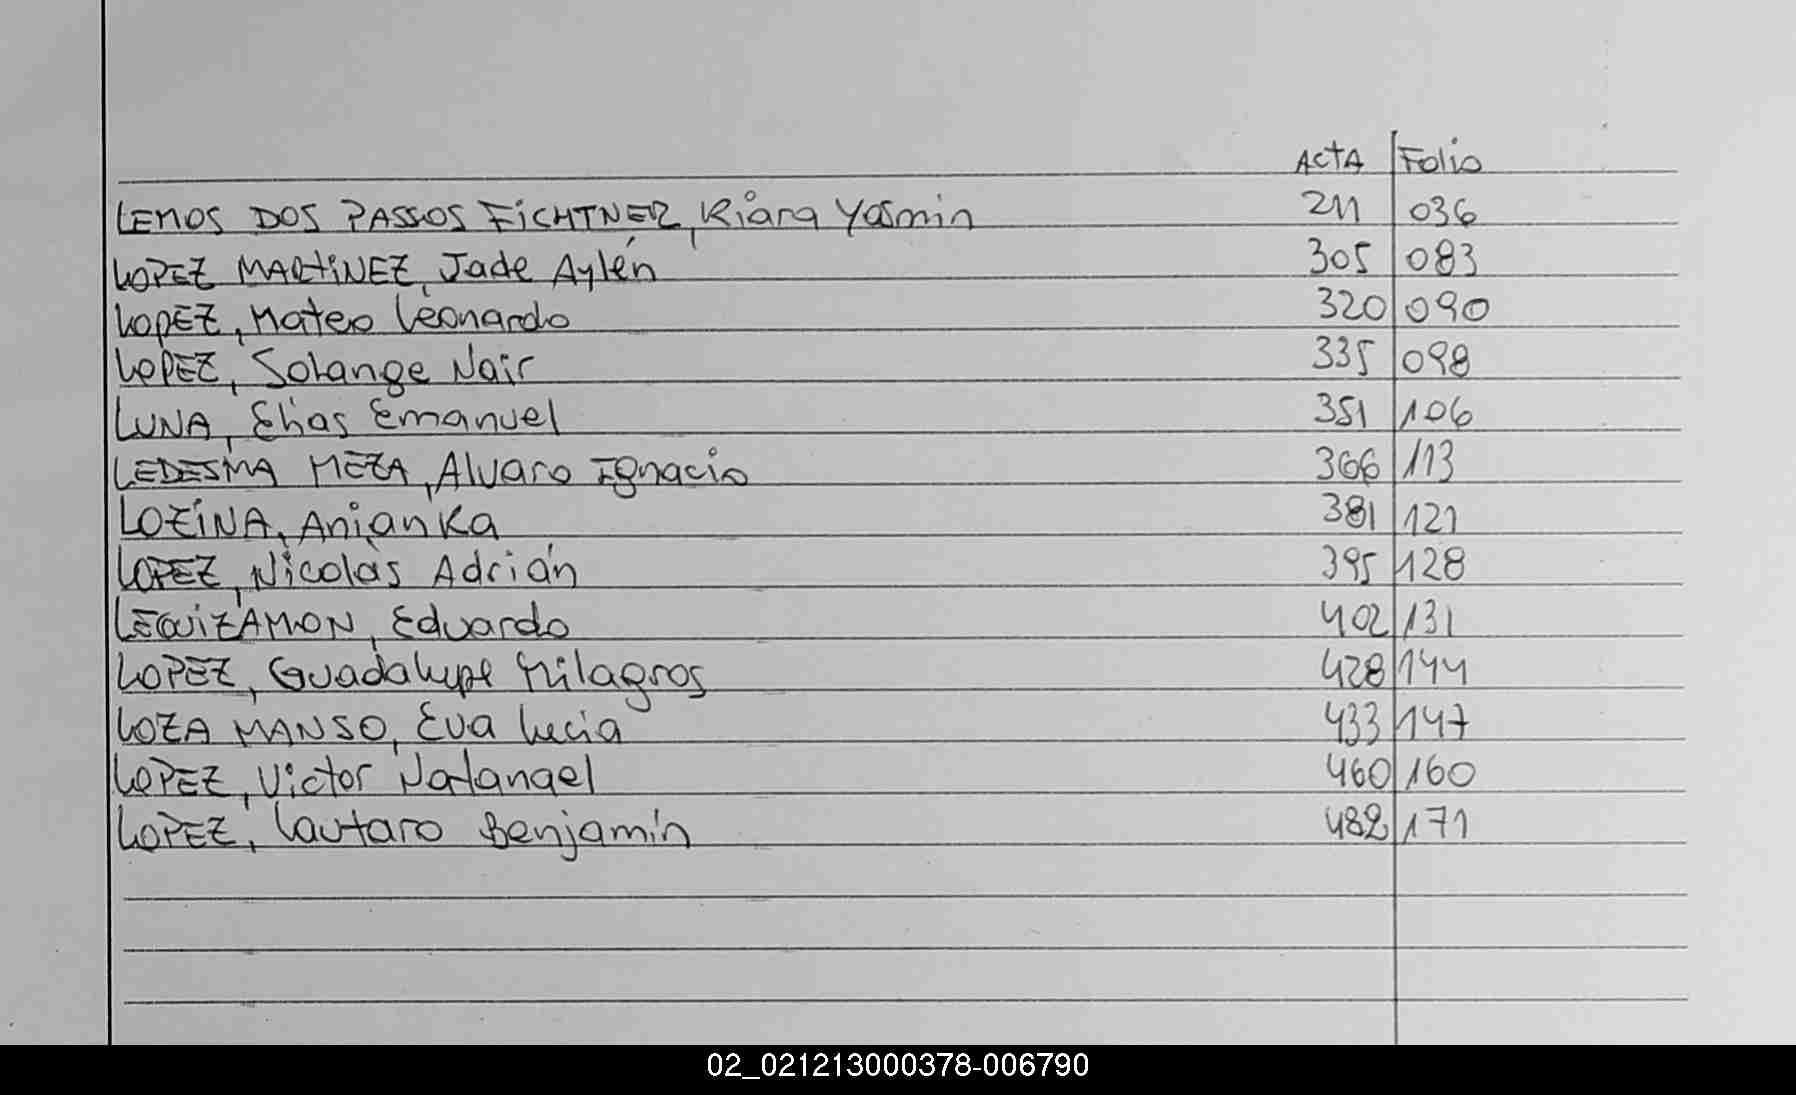 ACTA Folio
LEMOS DOS PASSOS FiCHTNER, Kiara Yasmin 211 036
LOPEZ MARtiNEZ, Jade Aylén 305 083
LOPEZ, Mateo Leonardo 320 090
LOPEZ, Solange Nair 335 098
LUNA, Elias Emanuel 351 106
LEDESMA MEZA, Alvaro Ignacio 366 113
LOZINA, Anianka 381 121
LOPEZ, Nicolás Adrián 395 128
LEGUiZAMON, Eduardo 402 131
LOPEZ, Guadalupe Milagros 428 144
LOZA MANSO, Eva Lucia 433 147
LOPEZ, Victor Natanael 460 160
LOPEZ, Lautaro Benjamín 482 171
02_021213000378-006790